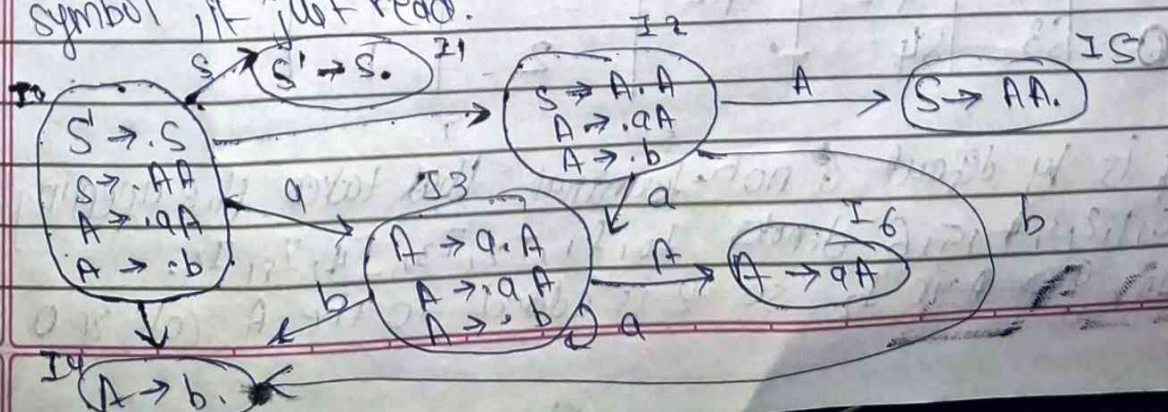 symbol it just read.
I0
S' → .S
S → .AA
A → .aA
A → .b
S
S' → S.
I1
I2
S → A.A
A → .aA
A → .b
A
I5
S → AA.
a
I3
A → a.A
A → .aA
A → .b
a
A
I6
A → aA
b
b
a
I4
A → b.